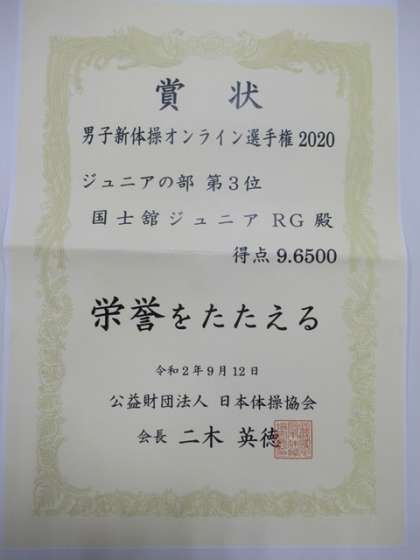 賞状
男子新体操オンライン選手権2020
ジュニアの部 第3位
国士舘ジュニアRG殿
得点 9.6500
栄誉をたたえる
令和2年9月12日
公益財団法人 日本体操協会
会長 二木 英徳